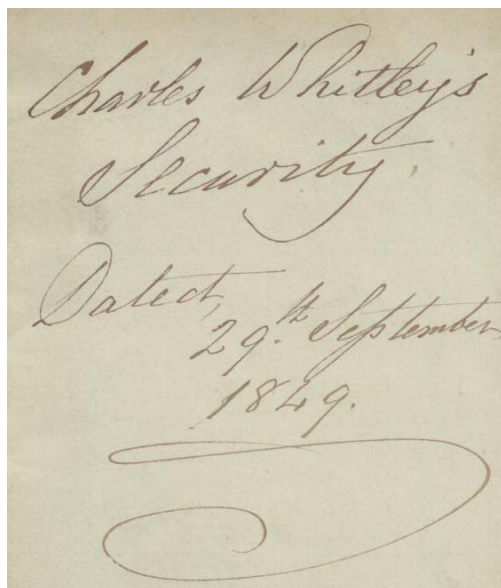 Charles Whitley's
Security.
Dated,
29.th September
1849.